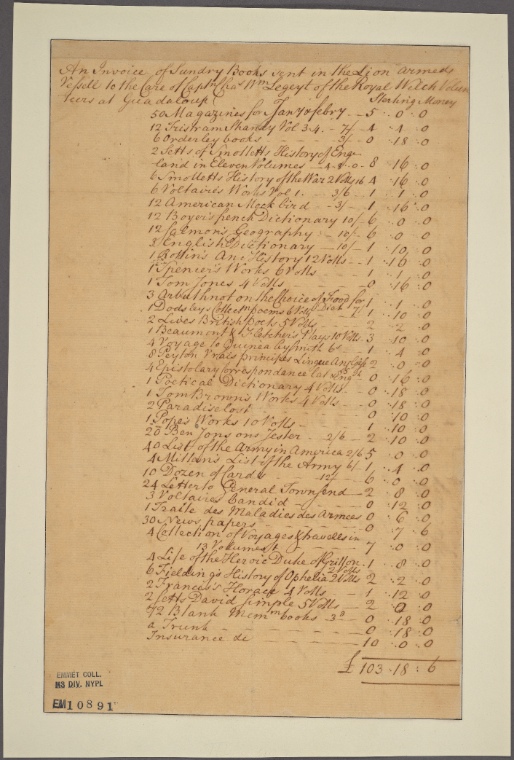 An Invoice of Sundry Books sent in the Lion armed
Vessell to the Care of Captn Chas Wm Legeyt of the Royal Welch Volun
teers at Guadaloup
Sterling Money
50 Magazines for Jany & febry — 5 .. 0 .. 0
12 Tristram Shandy Vol 3.4. — 7/ — 4 .. 4 .. 0
6 orderley books — 3/ — 0 .. 18 .. 0
2 Setts of Smolletts History of Eng
land in Eleven Volumes — 4.8.0 — 8 .. 16 .. 0
6 Smolletts History of the War 2 Volls 16 4 .. 16 .. 0
6 Voltairs Works Vol 1. — 3/6 — 1 .. 1 .. 0
12 American Mock bird — 3/ — 1 .. 16 .. 0
12 Boyers french Dictionary 10/ — 6 .. 0 .. 0
12 Salmons Geography — 10/ — 6 .. 0 .. 0
3 English Dictionary — 10/ — 1 .. 10 .. 0
1 Rollins Anc History 12 Volls — 1 .. 16 .. 0
1 Spencer's Works 6 Volls — 1 .. 1 .. 0
1 Tom Jones 4 Volls — 0 .. 16 .. 0
3 Arbuthnot on the Choice of Food for 1 .. 1 .. 0
1 Dodsleys Collectn poems 6 Voll 1 .. 10 .. 0
2 Lives British Poets 5 Volls — 2 .. 2 .. 0
1 Beaumont & Fletcher's Plays 10 Volls 3 .. 10 .. 0
4 Voyage to Guinea by Smith 6/ — 1 .. 4 .. 0
8 Peyton Vrais principes Lingue Angl 2 .. 0 .. 0
4 Epistolary Correspondence 0 .. 16 .. 0
1 Poetical Dictionary 4 Volls — 0 .. 18 .. 0
1 Tom Brown's Works 4 Volls — 0 .. 18 .. 0
2 Paradise lost — 0 .. 10 .. 0
1 Popes Works 10 Volls — 1 .. 10 .. 0
20 Ben Jonsons Jester — 2/6 — 2 .. 10 .. 0
40 List of the Army in America 2/6 5 .. 0 .. 0
4 Millans List of the Army 6/ 1 .. 4 .. 0
10 Dozen of Cards — 12/ — 6 .. 0 .. 0
24 Letter to General Townshend — 2 .. 8 .. 0
3 Voltaires Candid — 0 .. 12 .. 0
1 Traite des Maladies des Armees 0 .. 6 .. 0
30 News papers — 0 .. 7 .. 6
4 Collection of Voyages & travels in
13 Volumes — 7 .. 0 .. 0
4 Life of the Heroic Duke of 1 .. 8 .. 0
6 Fielding's History of Ophelia 2 Volls 2 .. 2 .. 0
2 Francis's Horace 4 Volls — 1 .. 12 .. 0
2 Setts David Simple 5 Volls — 2 .. 0 .. 0
72 Blank Memm books 3d — 0 .. 18 .. 0
a Trunk — 0 .. 18 .. 0
Insurance &c — 10 .. 0 .. 0
£ 103 .. 18 .. 6
EMMET COLL.
MS DIV. NYPL
EM10891